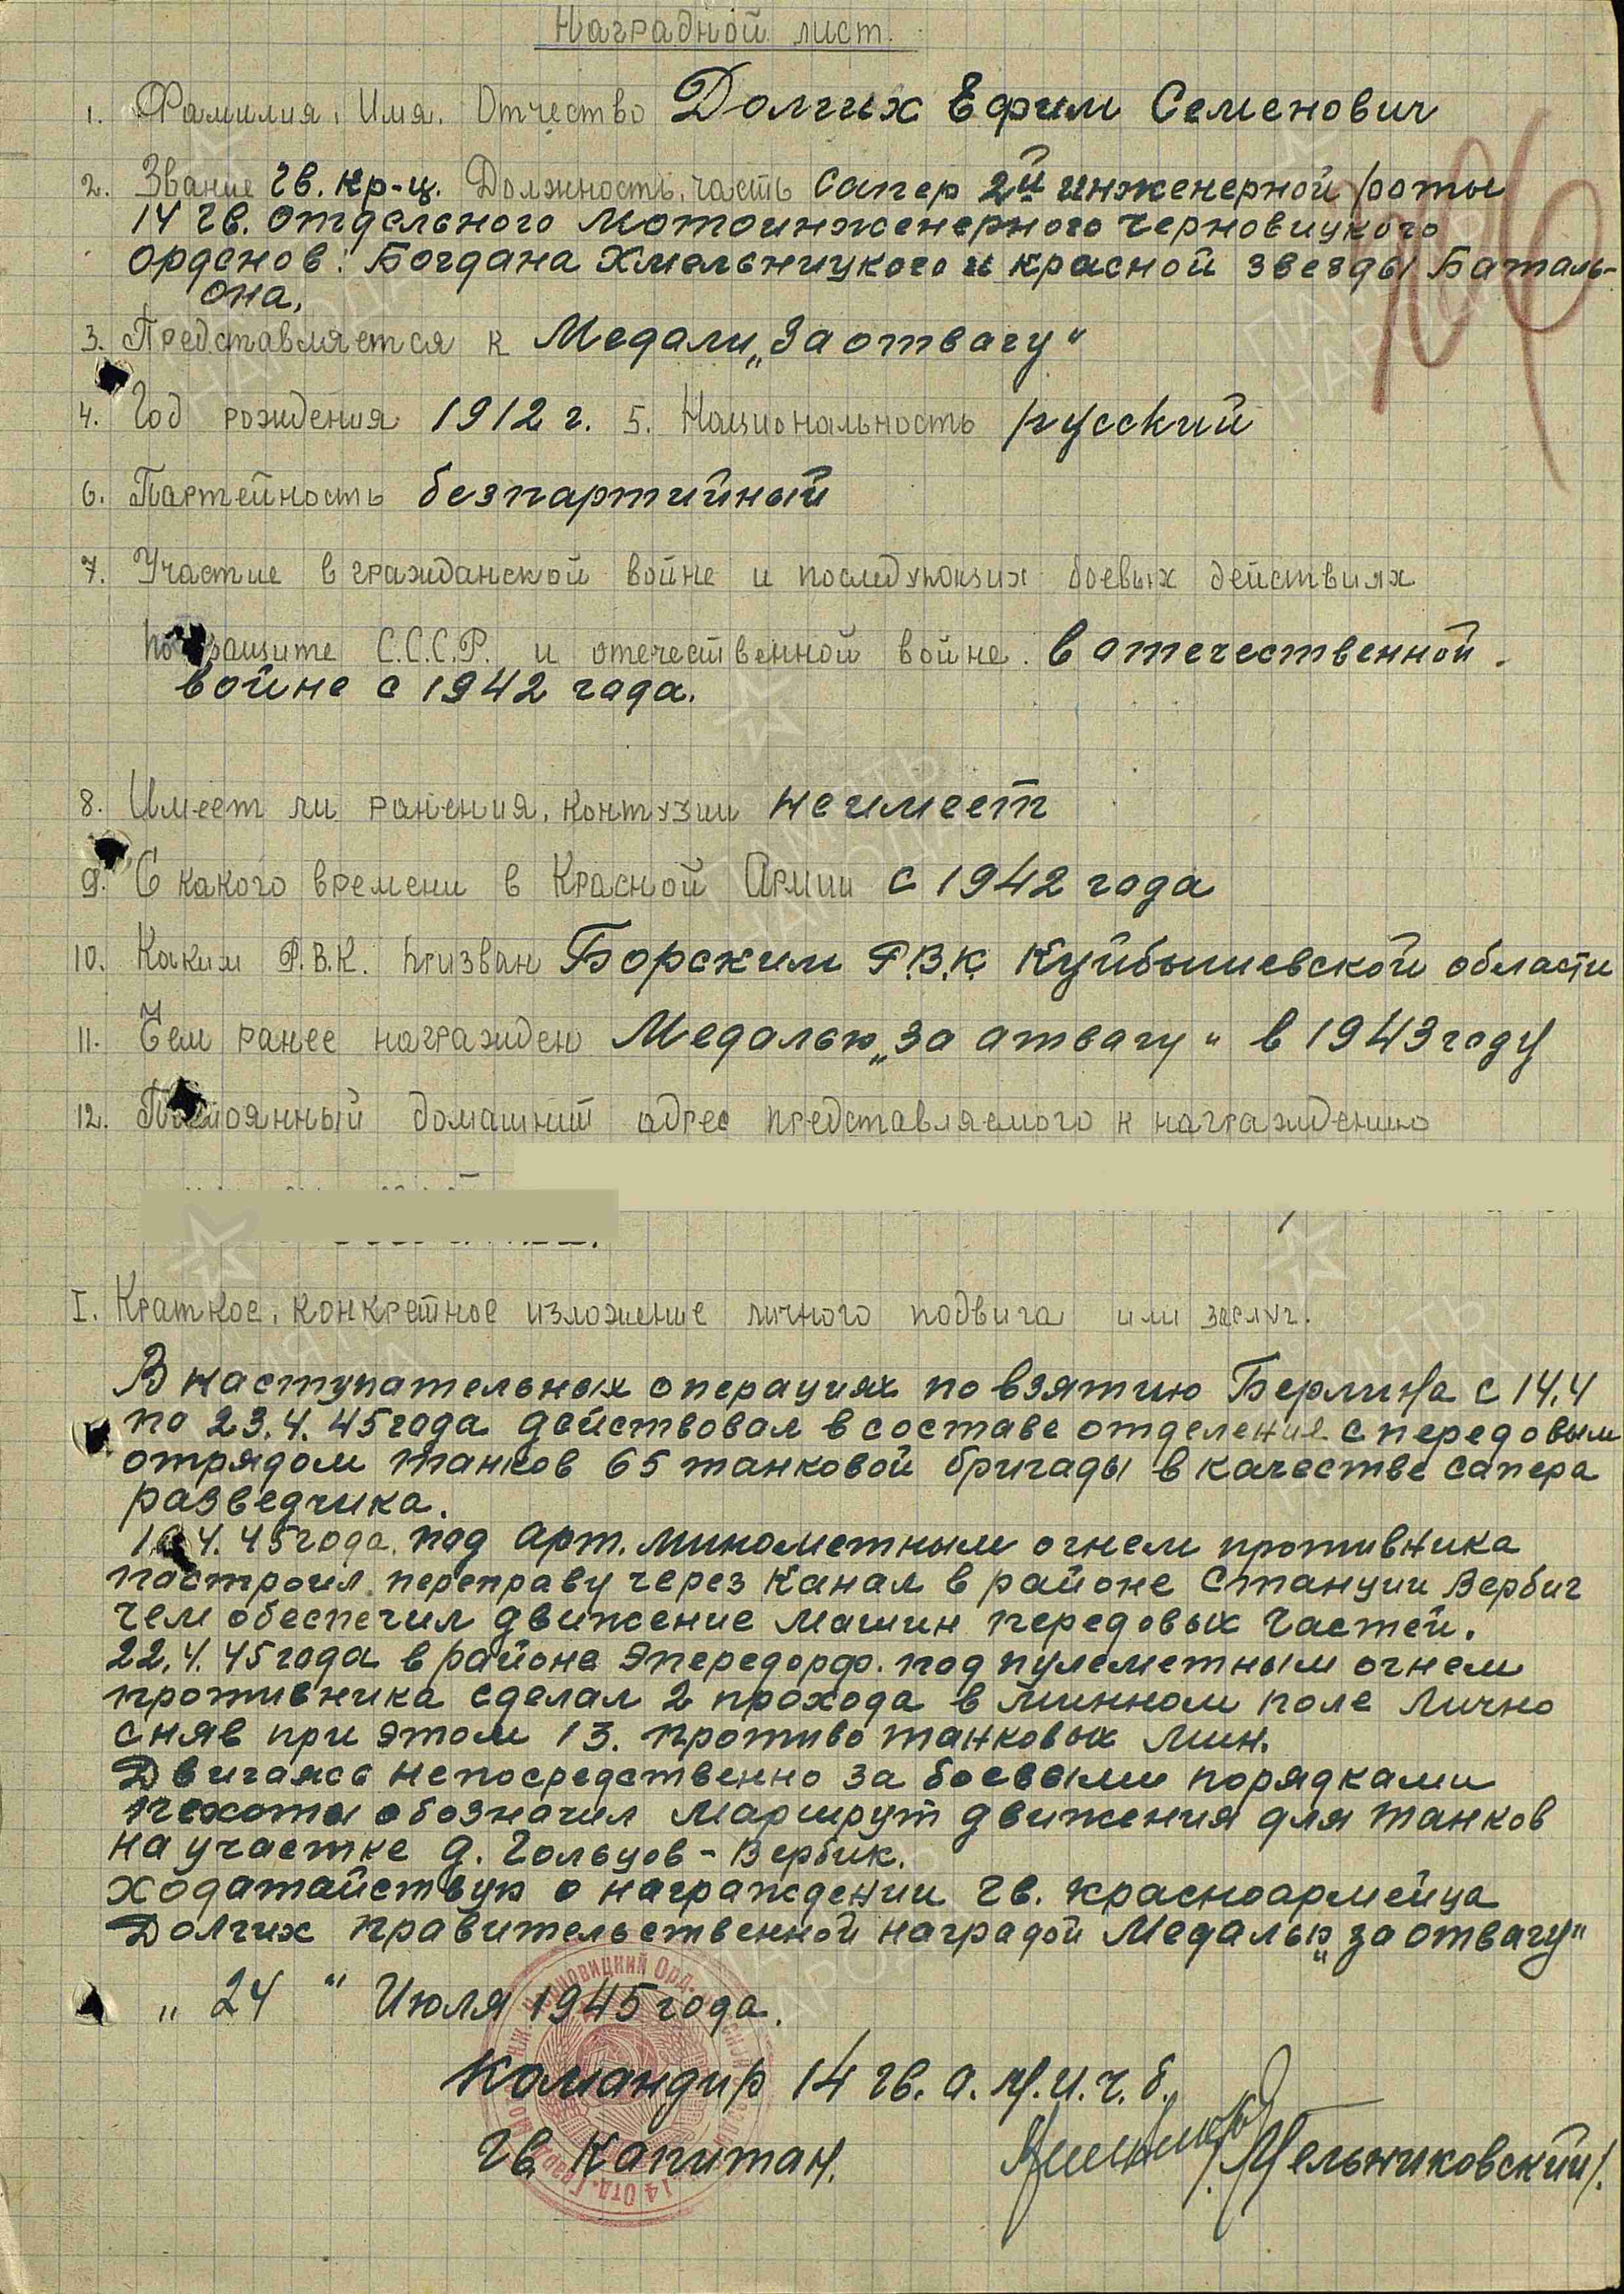 Наградной лист.
1. Фамилия, Имя, Отчество Долгих Ефим Семенович
2. Звание гв. кр-ц. Должность, часть сапер 2й инженерной роты
14 гв. отдельного мотоинженерного Черновицкого
орденов: Богдана Хмельницкого и красной звезды Баталь-
она.
3. Представляется к Медали „За отвагу“
4. Год рождения 1912 г. 5. Национальность русский
6. Партейность безпартийный
7. Участие в гражданской войне и последующих боевых действиях
по защите С.С.С.Р. и отечественной войне. в отечественной
войне с 1942 года.
8. Имеет ли ранения, контузии не имеет
9. С какого времени в Красной Армии с 1942 года
10. Каким Р.В.К. призван Борским Р.В.К. Куйбышевской области
11. Чем ранее награжден Медалью „за атвагу“ в 1943 году
12. Постоянный домашний адрес представляемого к награждению
I. Краткое, конкретное изложение личного подвига или заслуг.
В наступательных операциях по взятию Берлина с 14.4
по 23.4.45 года действовал в составе отделения с передовым
отрядом танков 65 танковой бригады в качестве сапера
разведчика.
4.45 года. под арт. минометным огнем противника
построил переправу через канал в районе Станции Вербиг
чем обеспечил движение машин передовых частей.
22.4.45 года в районе Эпередорф. под пулеметным огнем
противника сделал 2 прохода в минном поле лично
сняв при этом 13. противо танковых мин.
Двигаясь непосредственно за боевыми порядками
пехоты обозначил маршрут движения для танков
на участке д. Гольцов - Вербик.
Ходатайствую о награждении гв. красноармейца
Долгих правительственной наградой Медалью „за отвагу“
„ 24 “ Июля 1945 года.
Командир 14 гв. о. м. и. ч. б.
Гв. Капитан. /Мельниковский/.